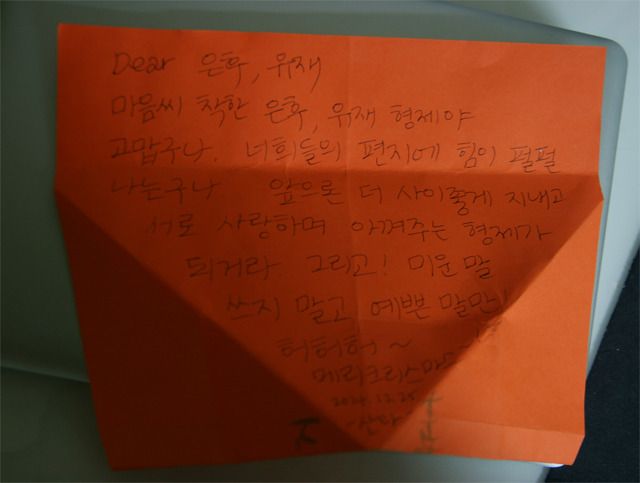 Dear 은후, 유재
마음씨 착한 은후, 유재 형제야
고맙구나. 너희들의 편지에 힘이 펄펄
나는구나 앞으론 더 사이좋게 지내고
서로 사랑하며 아껴주는 형제가
되거라 그리고! 미운 말
쓰지 말고 예쁜 말만!
허허허 ~
메리크리스마스
12.25
-산타